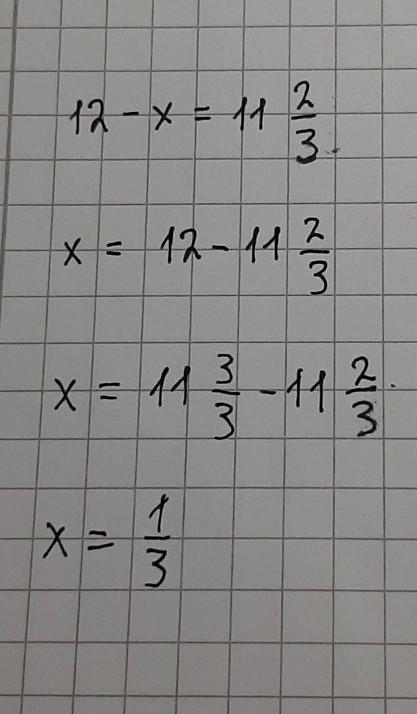 12 - x = 11 2/3
x = 12 - 11 2/3
x = 11 3/3 - 11 2/3
x = 1/3